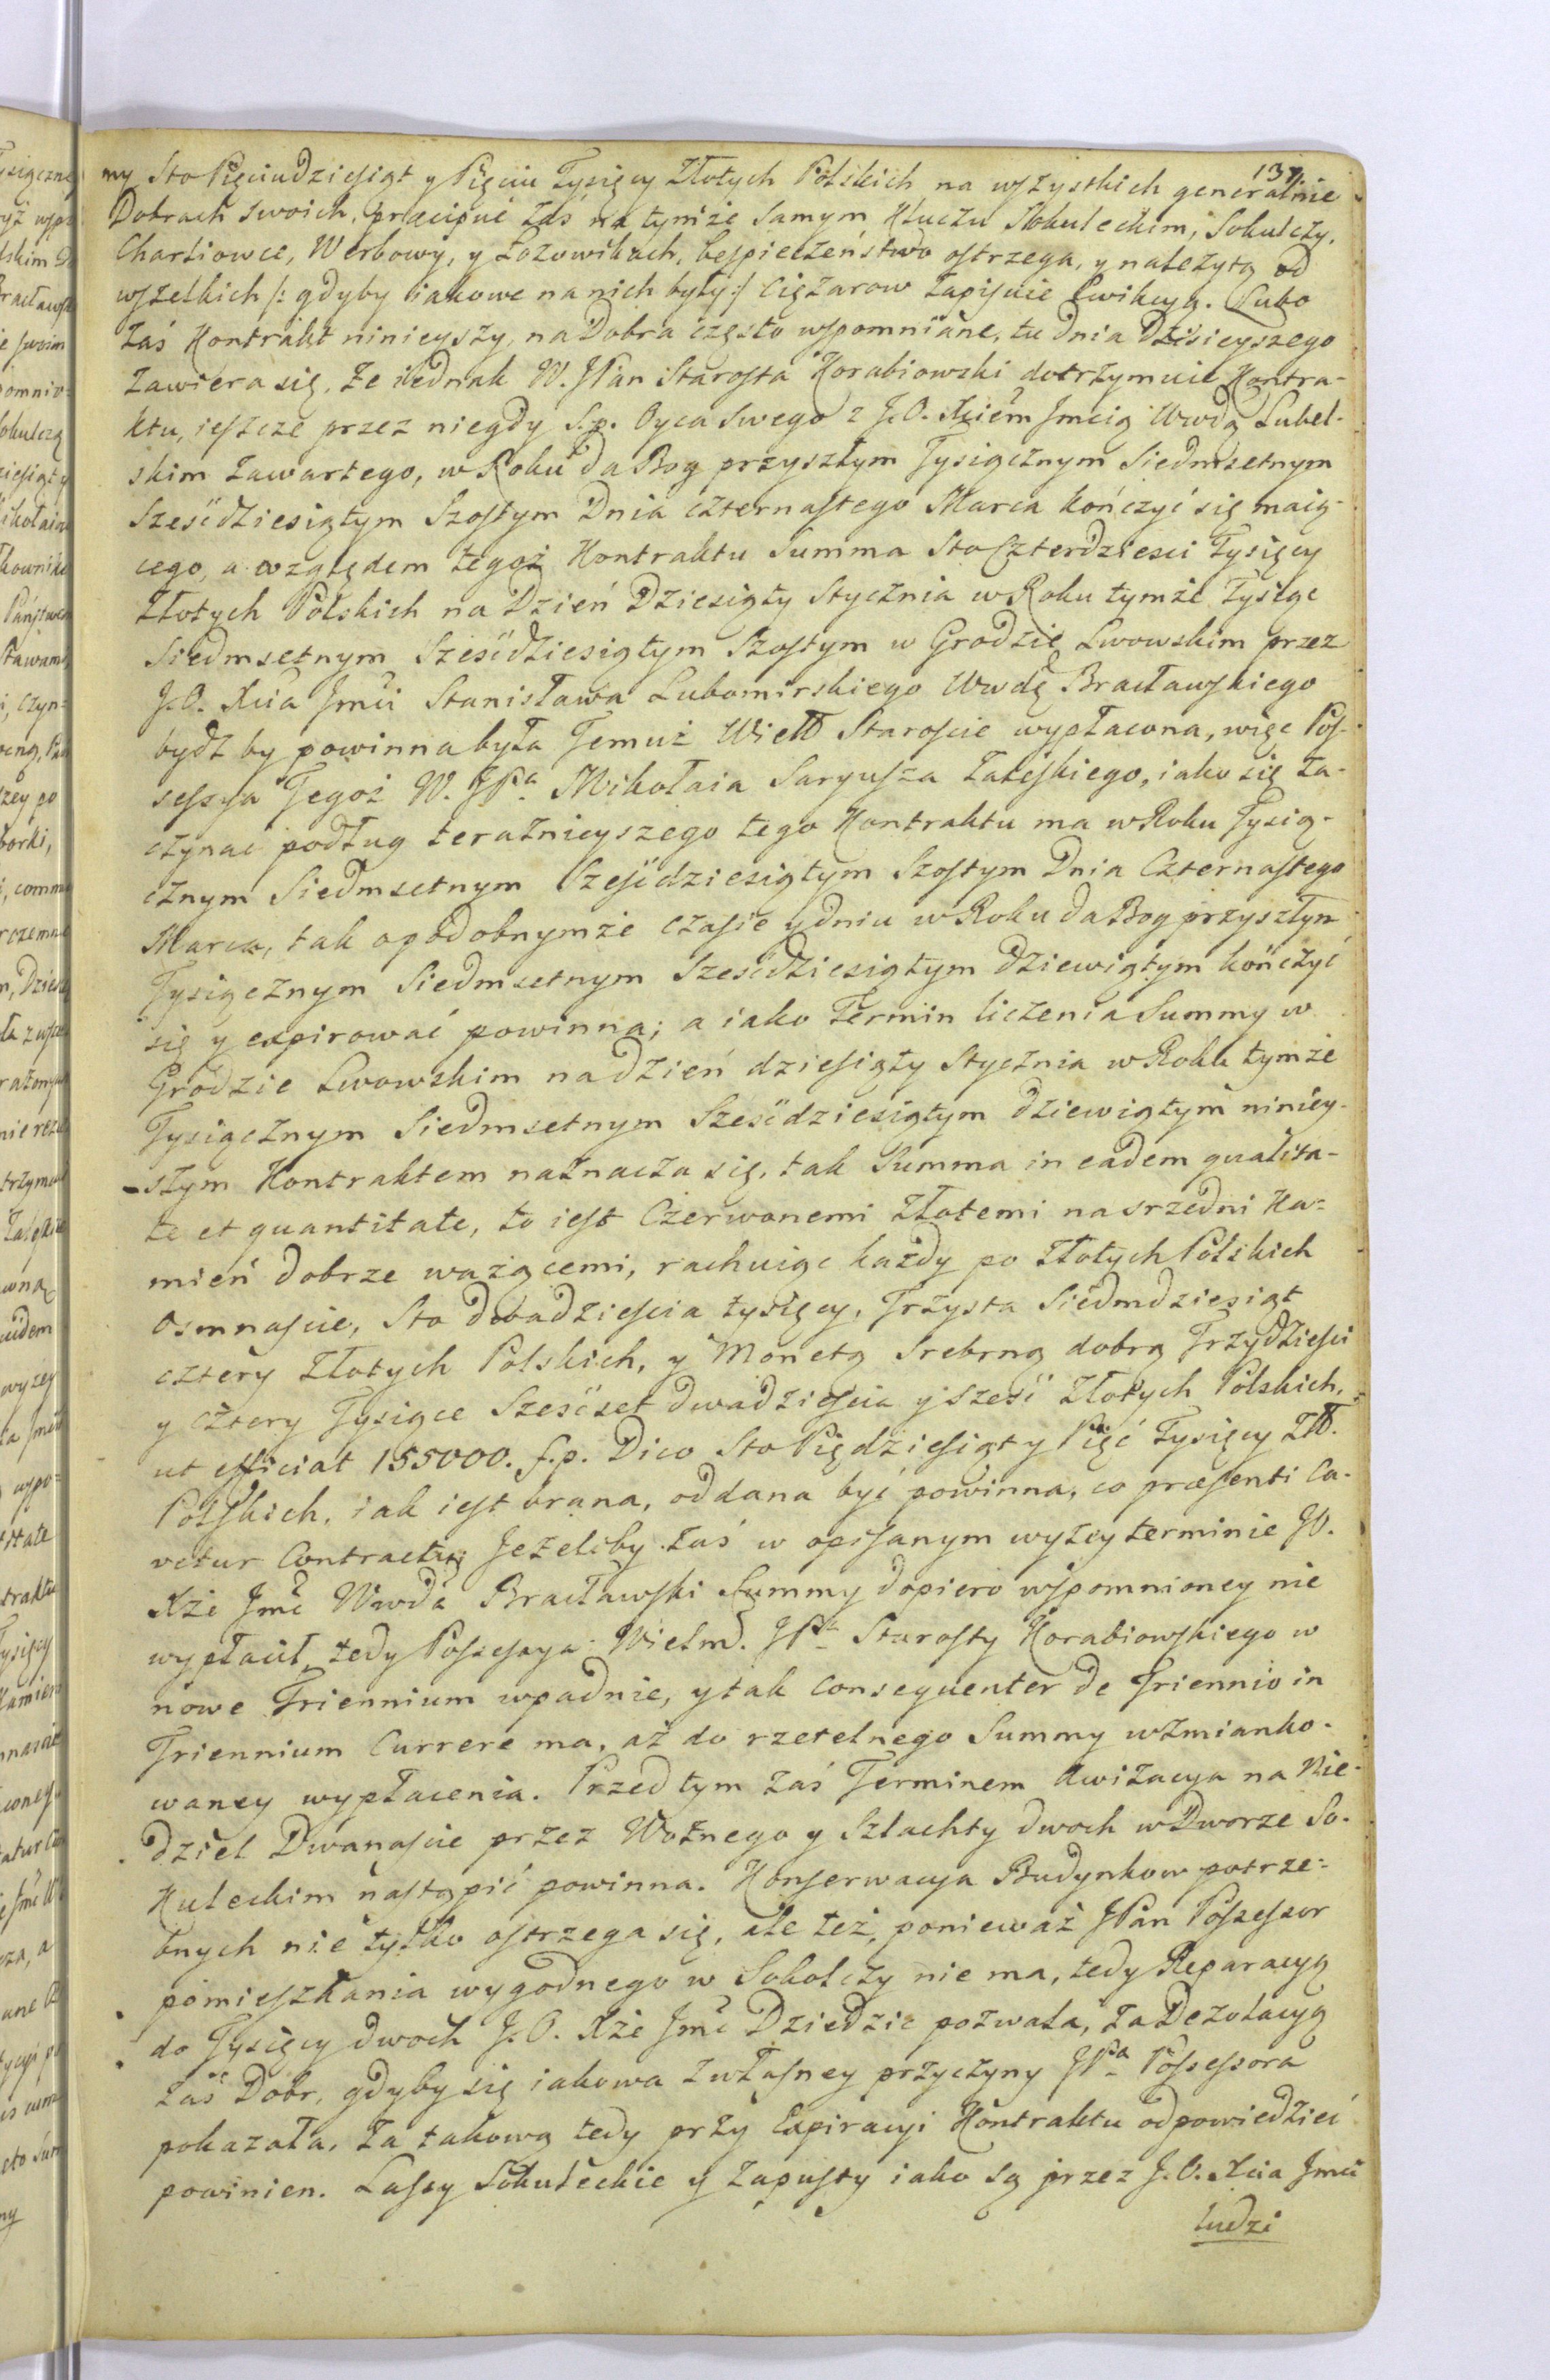 137.
my Sto Pięciudziesiąt y Pięciu Tysięcy Złotych Polskich na wszystkich generalnie
Dobrach swoich, præcipuè zaś na tymże samym Kluczu Sokuleckim, Sokulczy,
Charliowce, Werbowy, y Łozowikach, bespieczeństwo ostrzega, y należytą od
wszelkich /: gdyby iakowe na nich były :/ Ciężarow zapisuie Ewikcyą. Lubo
Zaś Kontrakt ninieyszy, na Dobra często wspomniane, tu dnia dzisieyszego
Zawiera się, że iednak W. JPan Starosta Korabiowski dotrzymuie Kontra-
ktu, ieszcze przez niegdy S.p. Oyca Swego z J.O. Xciem Jmcią Wwdą Lubel-
skim Zawartego, w Roku da Bog przyszłym Tysiącznym Siedmsetnym
Sześćdziesiątym Szostym Dnia czternastego Marca kończyć się maią-
cego, a względem tegoż Kontraktu Summa Sto Czterdziesci Tysięcy
Złotych Polskich na Dzień Dziesiąty Stycznia w Roku tymże Tysiąc
Siedmsetnym Sześćdziesiątym Szostym w Grodzie Lwowskim przez
J.O. Xcia Jmci Stanisława Lubomirskiego Wwdę Bracławskiego
bydź by powinna była Temuż Wiel Staroscie wypłacona, więc Pos-
sessya Tegoż W. JPa Mikołaia Saryusza Zaleskiego, iako się za-
czynać podług teraznieyszego tego Kontraktu ma w Roku Tysią-
cznym Siedmsetnym Sześćdziesiątym Szostym Dnia Czternastego
Marca, tak o podobnymże czasie y dniu w Roku da Bog przyszłym
Tysiącznym Siedmsetnym Sześćdziesiątym dziewiątym kończyć
się y expirować powinna; a iako Termin liczenia Summy w
Grodzie Lwowskim na dzień dziesiąty Stycznia w Roku tymże
Tysiącznym Siedmsetnym Sześćdziesiątym dziewiątym niniey-
szym Kontraktem naznacza się, tak Summa in eadem qualita-
te et quantitate, to iest Czerwonemi Złotemi na srzedni Ka-
mień dobrze ważącemi, rachuiąc każdy po Złotych Polskich
Osmnascie, Sto dwadziescia tysięcy, Trzysta Siedmdziesiąt
cztery Złotych Polskich, y Monetą Srebrną dobrą Trzydziesci
y cztery Tysiące Sześćset dwadziescia y sześć Złotych Polskich,
ut efficiat 155000. f.p. Dico Sto Pięcdziesiąt y Pięć Tysięcy Zł.
Polskich, iak iest brana, oddana być powinna, co præsenti Ca-
vetur Contractu; Jeżeliby zaś w opisanym wyżey terminie JO.
Xże Jmć Wwda Bracławski Summy dopiero wspomnioney nie
wypłacił, tedy Possessya Wielm. JPa Starosty Korabiowskiego w
nowe Triennium wpadnie, y tak consequenter de Triennio in
Triennium Currere ma, aż do rzetelnego Summy wzmianko-
waney wypłacenia. Przed tym zaś Terminem Awizacya na Nie-
dziel Dwanascie przez Woznego y Szlachty dwoch w Dworze So-
kuleckim nastąpić powinna. Konserwacya Budynkow potrze-
bnych nie tylko ostrzega się, ale też, ponieważ JPan Possessor
pomieszkania wygodnego w Sokolczy nie ma, tedy Reparacyą
do Tysięcy dwoch J.O. Xże Jmć Dziedzic pozwala, za Dezolacyą
zaś Dobr, gdyby się iakowa z własney przyczyny JPa Possessora
pokazała, za takową tedy przy Expiracyi Kontraktu odpowiedzieć
powinien. Lasy Sokuleckie y Zapusty iako są przez J.O. Xcia Jmci
ludzi